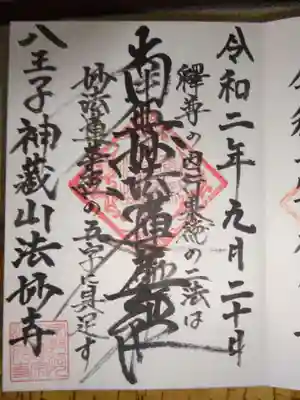 令和二年九月二十日
釋尊の因行果徳の二法は
南無妙法蓮華経
妙法蓮華経の五字に具足す
八王子神蔵山法妙寺